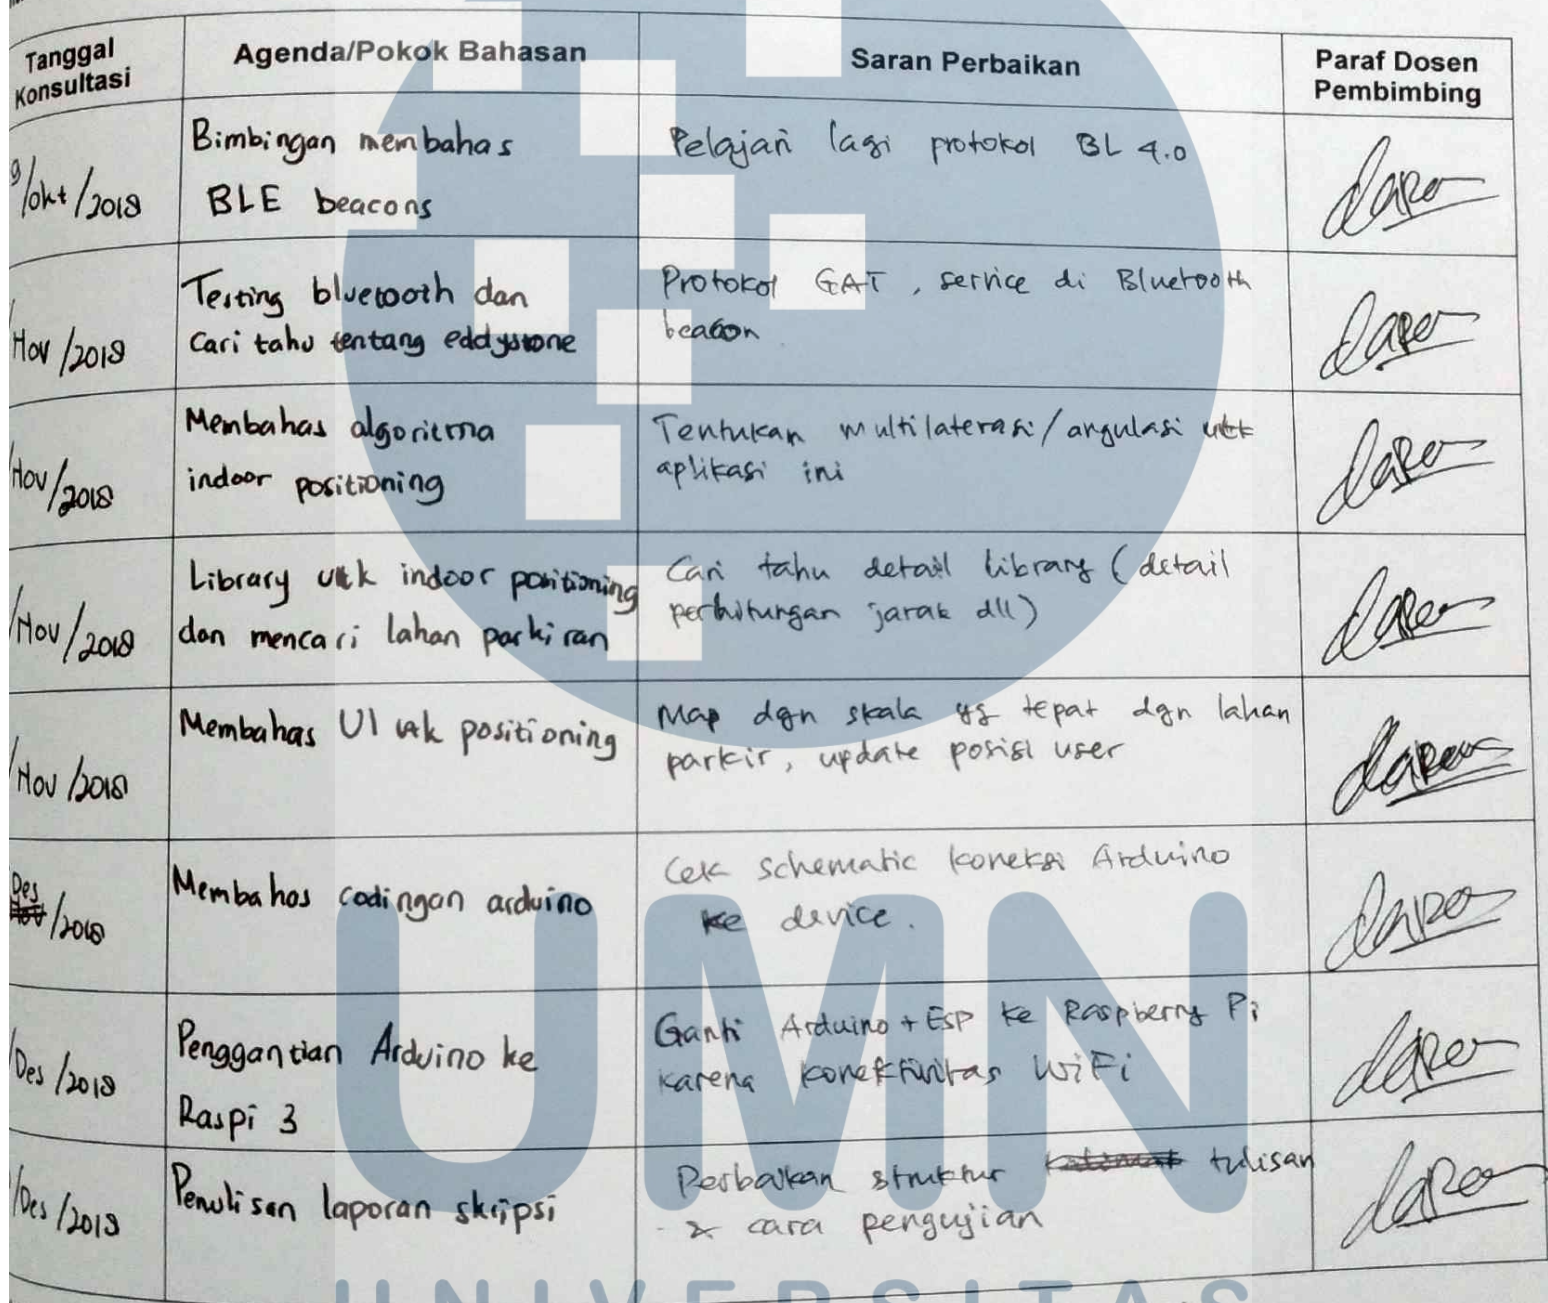 Tanggal Konsultasi | Agenda/Pokok Bahasan | Saran Perbaikan | Paraf Dosen Pembimbing
/okt/2018
Bimbingan membahas
BLE beacons
Pelajari lagi protokol BL 4.0
Nov/2018
Testing bluetooth dan
Cari tahu tentang eddystone
Protokol GAT, service di Bluetooth
beacon
Nov/2018
Membahas algoritma
indoor positioning
Tentukan multilaterasi/angulasi utk
aplikasi ini
/Nov/2018
Library utk indoor positioning
dan mencari lahan parkiran
Cari tahu detail library (detail
perhitungan jarak dll)
/Nov/2018
Membahas UI utk positioning
Map dgn skala yg tepat dgn lahan
parkir, update posisi user
Des
/2018
Membahas codingan arduino
Cek schematic koneksi Arduino
ke device.
/Des/2018
Penggantian Arduino ke
Raspi 3
Ganti Arduino + ESP ke Raspberry Pi
karena konektivitas WiFi
/Des/2018
Penulisan laporan skripsi
Perbaikan struktur tulisan
& cara pengujian
UMN
UNIVERSITAS